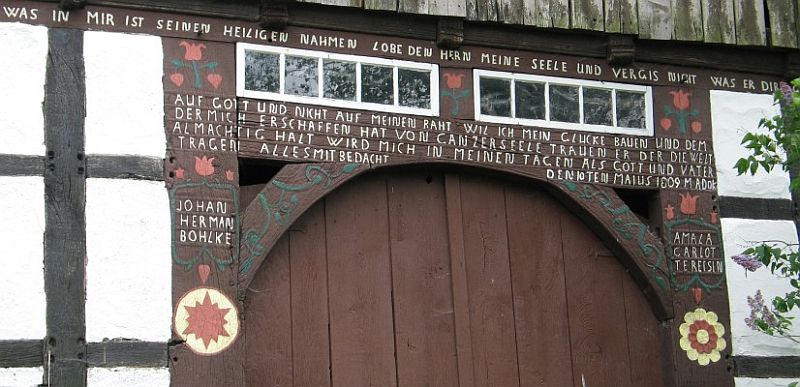 WAS IN MIR IST SEINEN HEILIGEN NAHMEN LOBE DEN HERN MEINE SEELE UND VERGIS NICHT WAS ER DIR
AUF GOTT UND NICHT AUF MEINEN RAHT WIL ICH MEIN GLÜCKE BAUEN UND DEM
DER MICH ERSCHAFFEN HAT VON GANZER SEELE TRAUEN ER DER DIE WELT
ALMÄCHTIG HALT WIRD MICH IN MEINEN TAGEN ALS GOTT UND VATER
TRAGEN ALLES MIT BEDACHT DEN 10TEN MAIUS 1809 M ADOK
JOHAN
HERMAN
BÖHLKE
AMALA
CARLOT
TEREISIN